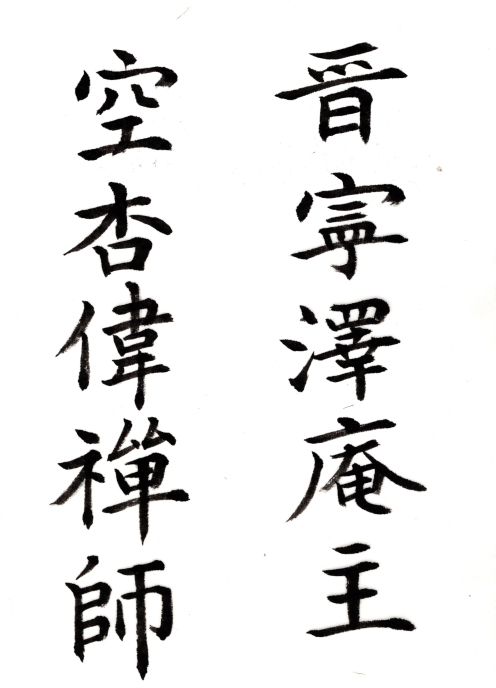 晋寧澤庵主
空杏偉禪師